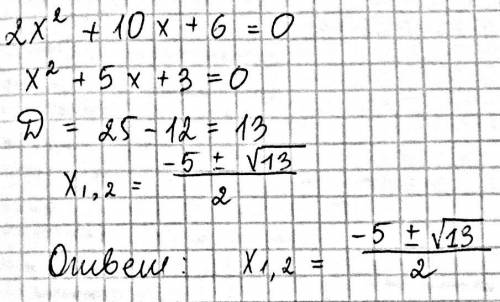 2x² + 10x + 6 = 0
x² + 5x + 3 = 0
D = 25 - 12 = 13
x₁,₂ = (-5 ± √13)/2
Ответ: x₁,₂ = (-5 ± √13)/2